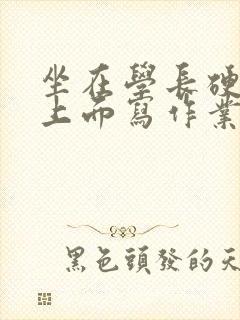 坐在學長硬
上而寫作業
黑色頭發的天